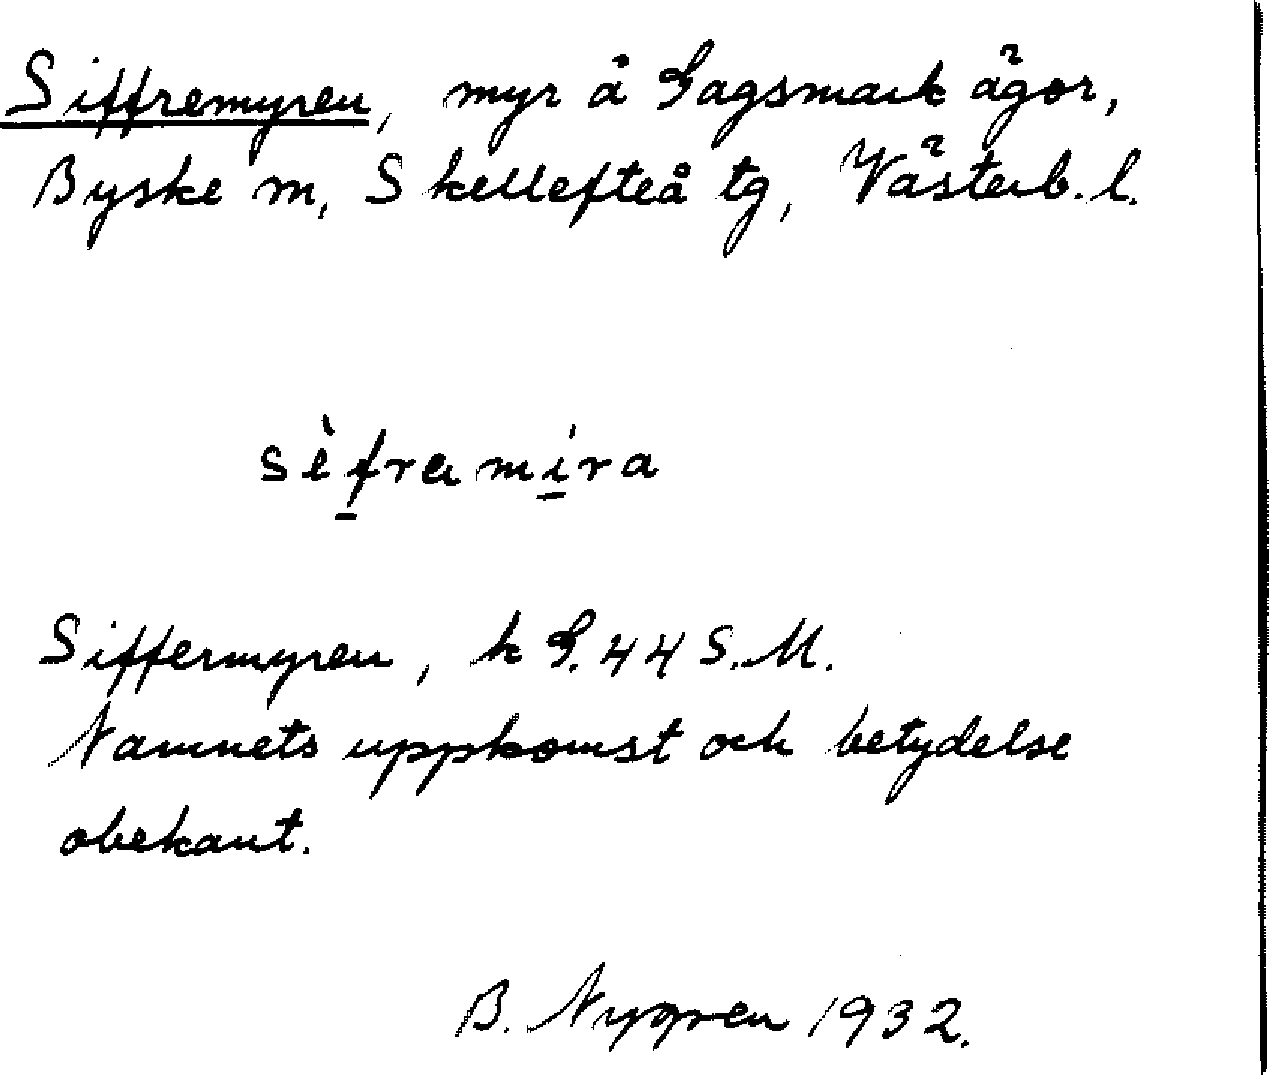 Siffremyren, myr å Gagsmark ägor,
Byske sn, Skellefteå tg, Västerb. l.
sèframíra
Siffermyren, k G. 44 S.M.
Namnets uppkomst och betydelse
obekant.
B. Nygren 1932.